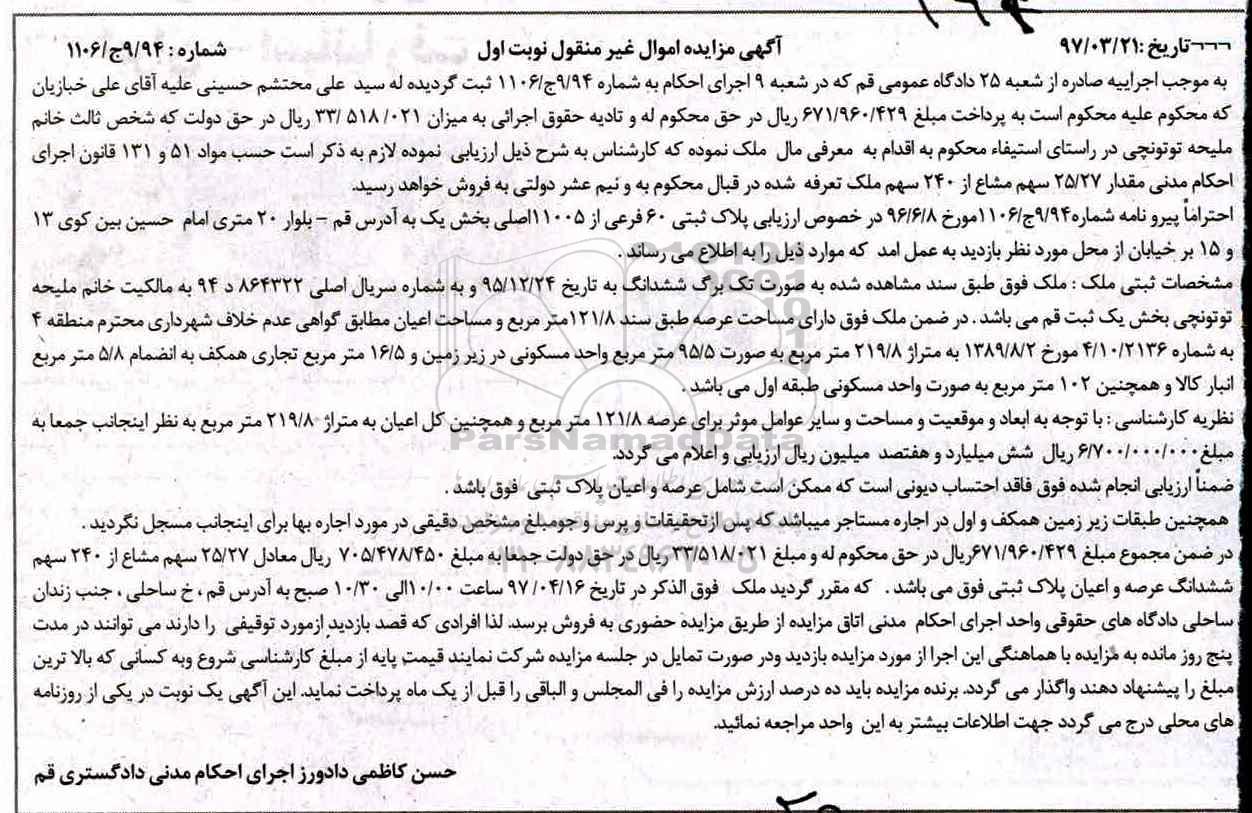 تاریخ :۹۷/۰۳/۲۱ آگهی مزایده اموال غیر منقول نوبت اول شماره : ۹/۹۴ج/۱۱۰۶
به موجب اجراییه صادره از شعبه ۲۵ دادگاه عمومی قم که در شعبه ۹ اجرای احکام به شماره ۹/۹۴ج/۱۱۰۶ ثبت گردیده له سید علی محتشم حسینی علیه آقای علی خبازیان
که محکوم علیه محکوم است به پرداخت مبلغ ۶۷۱/۹۶۰/۴۲۹ ریال در حق محکوم له و تادیه حقوق اجرائی به میزان ۰۲۱/ ۵۱۸ /۳۳ ریال در حق دولت که شخص ثالث خانم
ملیحه توتونچی در راستای استیفاء محکوم به اقدام به معرفی مال ملک نموده که کارشناس به شرح ذیل ارزیابی نموده لازم به ذکر است حسب مواد ۵۱ و ۱۳۱ قانون اجرای
احکام مدنی مقدار ۲۵/۲۷ سهم مشاع از ۲۴۰ سهم ملک تعرفه شده در قبال محکوم به و نیم عشر دولتی به فروش خواهد رسید.
احتراماً پیرو نامه شماره۹/۹۴ج/۱۱۰۶مورخ ۹۶/۶/۸ در خصوص ارزیابی پلاک ثبتی ۶۰ فرعی از ۱۱۰۰۵اصلی بخش یک به آدرس قم – بلوار ۲۰ متری امام حسین بین کوی ۱۳
و ۱۵ بر خیابان از محل مورد نظر بازدید به عمل امد که موارد ذیل را به اطلاع می رساند .
مشخصات ثبتی ملک : ملک فوق طبق سند مشاهده شده به صورت تک برگ ششدانگ به تاریخ ۹۵/۱۲/۲۴ و به شماره سریال اصلی ۸۶۴۳۲۲ د ۹۴ به مالکیت خانم ملیحه
توتونچی بخش یک ثبت قم می باشد . در ضمن ملک فوق دارای مساحت عرصه طبق سند ۱۲۱/۸متر مربع و مساحت اعیان مطابق گواهی عدم خلاف شهرداری محترم منطقه ۴
به شماره ۴/۱۰/۲۱۳۶ مورخ ۱۳۸۹/۸/۲ به متراژ ۲۱۹/۸ متر مربع به صورت ۹۵/۵ متر مربع واحد مسکونی در زیر زمین و ۱۶/۵ متر مربع تجاری همکف به انضمام ۵/۸ متر مربع
انبار کالا و همچنین ۱۰۲ متر مربع به صورت واحد مسکونی طبقه اول می باشد .
نظریه کارشناسی : با توجه به ابعاد و موقعیت و مساحت و سایر عوامل موثر برای عرصه ۱۲۱/۸ متر مربع و همچنین کل اعیان به متراژ ۲۱۹/۸ متر مربع به نظر اینجانب جمعا به
مبلغ۶/۷۰۰/۰۰۰/۰۰۰ ریال شش میلیارد و هفتصد میلیون ریال ارزیابی و اعلام می گردد.
ParsNamadData
ضمناً ارزیابی انجام شده فوق فاقد احتساب دیونی است که ممکن است شامل عرصه و اعیان پلاک ثبتی فوق باشد .
همچنین طبقات زیر زمین همکف و اول در اجاره مستاجر میباشد که پس ازتحقیقات و پرس و جومبلغ مشخص دقیقی در مورد اجاره بها برای اینجانب مسجل نگردید .
در ضمن مجموع مبلغ ۶۷۱/۹۶۰/۴۲۹ریال در حق محکوم له و مبلغ ۳۳/۵۱۸/۰۲۱ ریال در حق دولت جمعا به مبلغ ۷۰۵/۴۷۸/۴۵۰ ریال معادل ۲۵/۲۷ سهم مشاع از ۲۴۰ سهم
ششدانگ عرصه و اعیان پلاک ثبتی فوق می باشد . که مقرر گردید ملک فوق الذکر در تاریخ ۹۷/۰۴/۱۶ ساعت ۱۰/۰۰الی ۱۰/۳۰ صبح به آدرس قم ، خ ساحلی ، جنب زندان
ساحلی دادگاه های حقوقی واحد اجرای احکام مدنی اتاق مزایده از طریق مزایده حضوری به فروش برسد. لذا افرادی که قصد بازدید ازمورد توقیفی را دارند می توانند در مدت
پنج روز مانده به مزایده با هماهنگی این اجرا از مورد مزایده بازدید ودر صورت تمایل در جلسه مزایده شرکت نمایند قیمت پایه از مبلغ کارشناسی شروع وبه کسانی که بالا ترین
مبلغ را پیشنهاد دهند واگذار می گردد. برنده مزایده باید ده درصد ارزش مزایده را فی المجلس و الباقی را قبل از یک ماه پرداخت نماید. این آگهی یک نوبت در یکی از روزنامه
های محلی درج می گردد جهت اطلاعات بیشتر به این واحد مراجعه نمائید.
حسن کاظمی دادورز اجرای احکام مدنی دادگستری قم